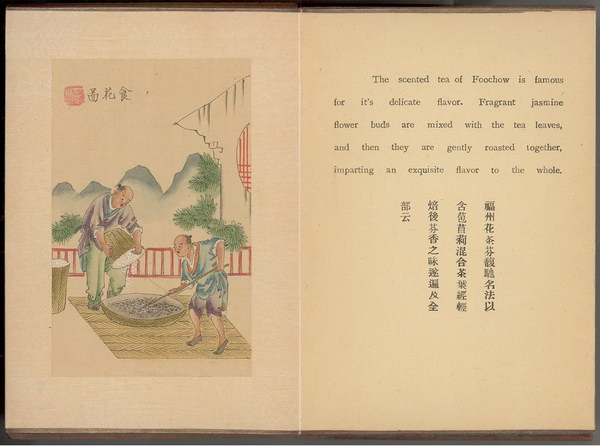 食花啚
The scented tea of Foochow is famous
for it's delicate flavor. Fragrant jasmine
flower buds are mixed with the tea leaves,
and then they are gently roasted together,
imparting an exquisite flavor to the whole.
福州花茶芬馥馳名法以
含苞苜莉混合茶葉經輕
焙後芬香之味遂遍及全
部云